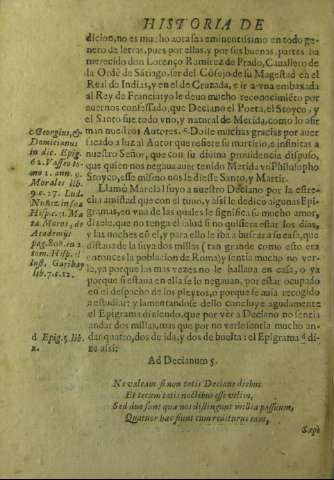 HISTORIA DE
dicion, no es mucho aora sea eminentissimo en todo ge-
nero de letras, pues por ellas, y por sus buenas partes ha
merecido don Lorenço Ramirez de Prado, Cavallero de
la Ordē de Sātiago, ser del Cōsejo de su Magestad en el
Real de Indias, y en el de Cruzada, e ir a vna embaxada
al Rey de Francia: yo le devo mucho reconocimiēto por
avernos confessado, que Deciano el Poeta, el Stoyco, y
el Santo fue todo vno, y natural de Merida, como lo afir
man nuestros Autores. Doile muchas gracias por aver
sacado a luz al Autor que refiere su martirio, e infinitas a
nuestro Señor, que con su divina providencia dispuso,
que quien nos negava aver tenido Merida vn Philosopho
Stoyco, esse mismo nos le diesse Santo, y Martir.
Llamò Marcial suyo a nuestro Deciano por la estre-
cha amistad que con el tuvo, y assi le dedicò algunos Epi-
gramas, en vna de las quales le significa su mucho amor,
dizele, que no tenga el salud si no quisiera estar los dias,
y las noches cō el, y para ello le iba a buscar a su casa, que
distava de la suya dos millas (tan grande como esto era
entonces la poblacion de Roma) y sentia mucho no ver-
le, ya porque las mas vezes no le hallava en casa, o ya
porque si estava en ella se lo negavan, por estar ocupado
en el despacho de los pleytos, o porque se avia recogido
a estudiar: y lamentandose dello concluye agudamente
el Epigrama diziendo, que por ver a Deciano no sentia
andar dos millas, mas que por no verle sentia mucho an-
dar quatro, dos de ida, y dos de buelta: el Epigrama d di-
ze assi:
c Georgius, &
Damitianus
in dic. Epig.
62. Vasseo to-
mo 1. ann. 9.
Morales lib.
9. c. 27. Lud.
Nuñez in sua
Hisp. c. Ma
ta Moros, de
Academijs
pag. 808. in 2.
tom. Hisp. il
lust. Garibay
lib. 7. c. 12.
d Epig. 5. lib.
2.
Ad Decianum 5.
Ne valeam si non totis Deciane diebus
Et tecum totis noctibus esse velim,
Sed duo sunt quæ nos distingunt millia passuum,
Quatuor hæc fiunt cum rediturus eam,
Sæpè